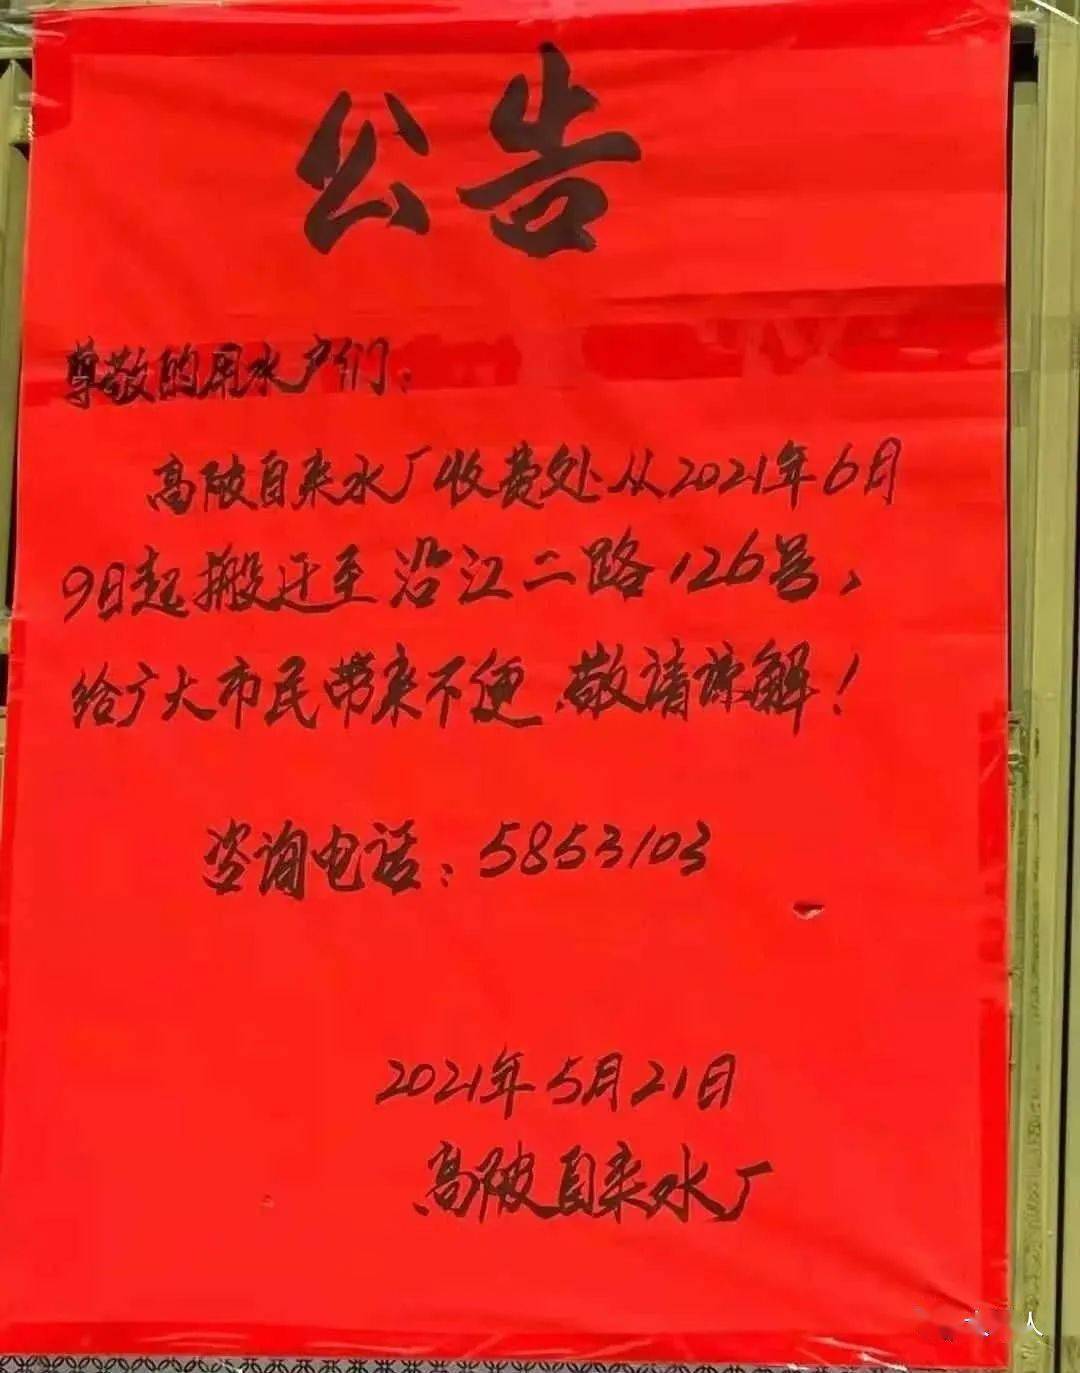 公告
尊敬的用水户们：
高陂自来水厂收费处从2021年6月
9日起搬迁至沿江二路126号，
给广大市民带来不便，敬请谅解！
咨询电话：5853103
2021年5月21日
高陂自来水厂
人